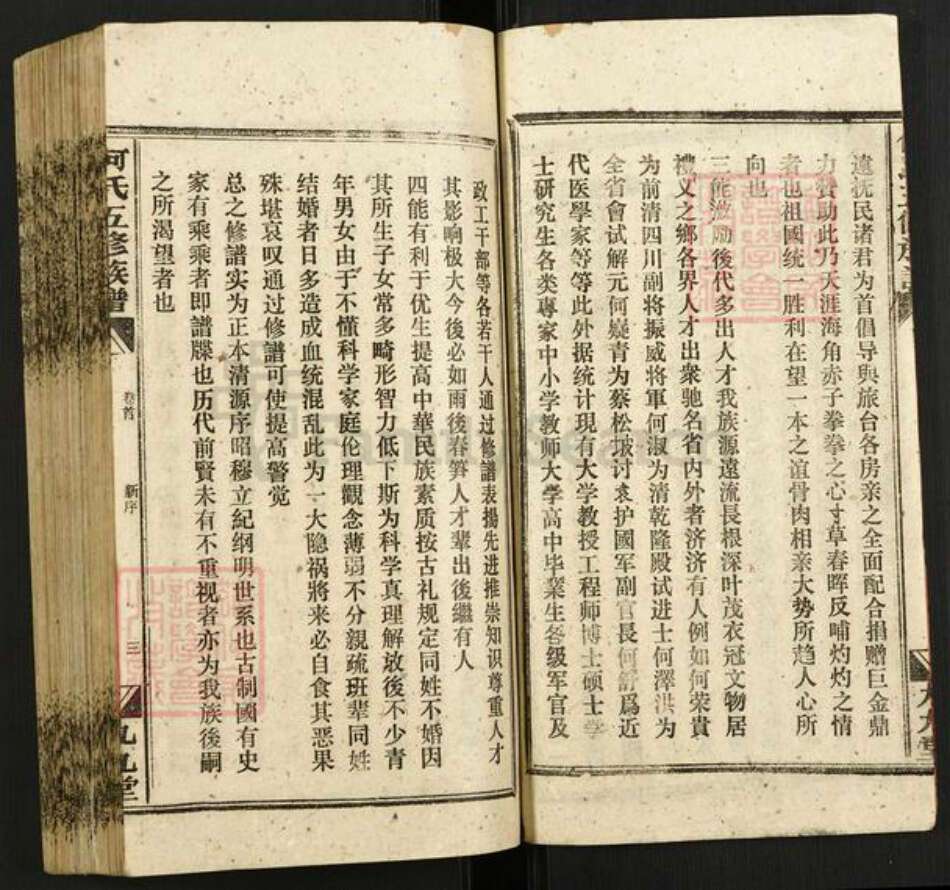 遠抚民诸君为首倡导與旅台各房亲之全面配合捐赠巨金鼎
力贊助此乃天涯海角赤子拳拳之心寸草春晖反哺灼灼之情
者也祖國统一胜利在望一本之谊骨肉相亲大势所趋人心所
向也
三能激励後代多出人才我族源遠流長根深叶茂衣冠文物居
禮义之鄉各界人才出衆驰名省内外者济济有人例如何荣貴
为前清四川副将振威將軍何淑为清乾隆殿试进士何澤洪为
全省會试解元何嶷青为蔡松坡讨袁护國軍副官長何舒爲近
代医學家等等此外据统计現有大学教授工程师博士硕士学
士研究生各类專家中小学教师大学高中毕業生各级军官及
政工干部等各若干人通过修譜表揚先进推崇知识尊重人才
其影响极大今後必如雨後春笋人才辈出後繼有人
四能有利于优生提高中華民族素质按古礼规定同姓不婚因
其所生子女常多畸形智力低下斯为科学真理解放後不少青
年男女由于不懂科学家庭伦理觀念薄弱不分親疏班輩同姓
结婚者日多造成血统混乱此为一大隐祸將来必自食其恶果
殊堪哀叹通过修譜可使提高警觉
总之修譜实为正本清源序昭穆立紀纲明世系也古制國有史
家有乘乘者即譜牒也历代前賢未有不重视者亦为我族後嗣
之所渴望者也
何氏五修族譜
卷首
新序
三
九九堂